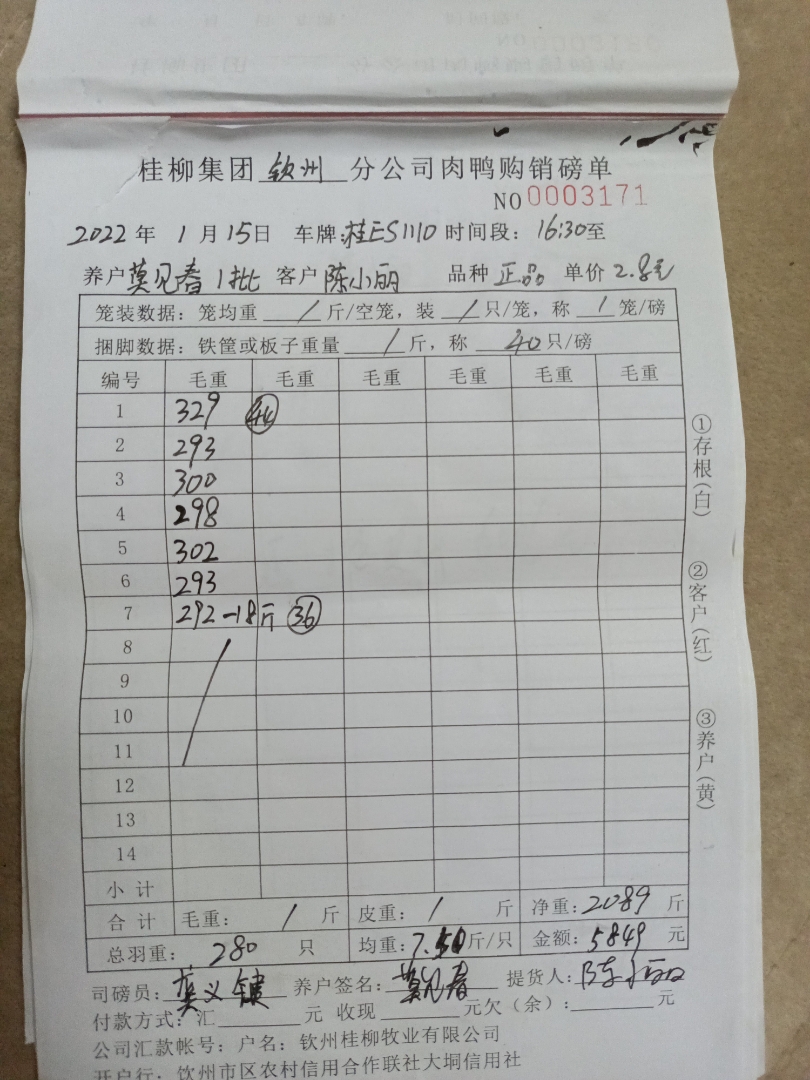 桂柳集团 钦州 分公司肉鸭购销磅单
NO 0003171
2022 年 1 月 15 日 车牌:桂ES1110 时间段: 16:30至
养户 莫见春 1批 客户 陈小丽 品种 正品 单价 2.8元
笼装数据: 笼均重 / 斤/空笼, 装 / 只/笼, 称 1 笼/磅
捆脚数据: 铁筐或板子重量 / 斤, 称 40 只/磅
编号 毛重 毛重 毛重 毛重 毛重 毛重
1 329 44
2 293
3 300
4 298
5 302
6 293
7 292-18斤 36
8
9
10
11
12
13
14
小计
合计 毛重: / 斤 皮重: / 斤 净重: 2089 斤
总羽重: 280 只 均重: 7.50 斤/只 金额: 5849 元
司磅员: 莫义键 养户签名: 莫见春 提货人: 陈小丽
付款方式: 汇 元 收现 元欠(余): 元
公司汇款帐号: 户名: 钦州桂柳牧业有限公司
开户行: 钦州市区农村信用合作联社大垌信用社
①存根(白)
②客户(红)
③养户(黄)